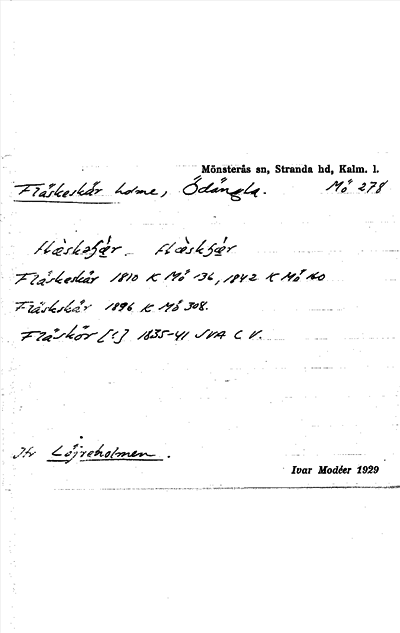 Mönsterås sn, Stranda hd, Kalm. l.
Fläskeskär holme, Ödängla. Mö 278
Fläskeskär 1810 K Mö 136, 1842 K Mö 160
Fläskskär 1896 K Mö 308.
Flaskör [!] 1835-41 JVA C V.
Jfr Löjreholmen.
Ivar Modéer 1929